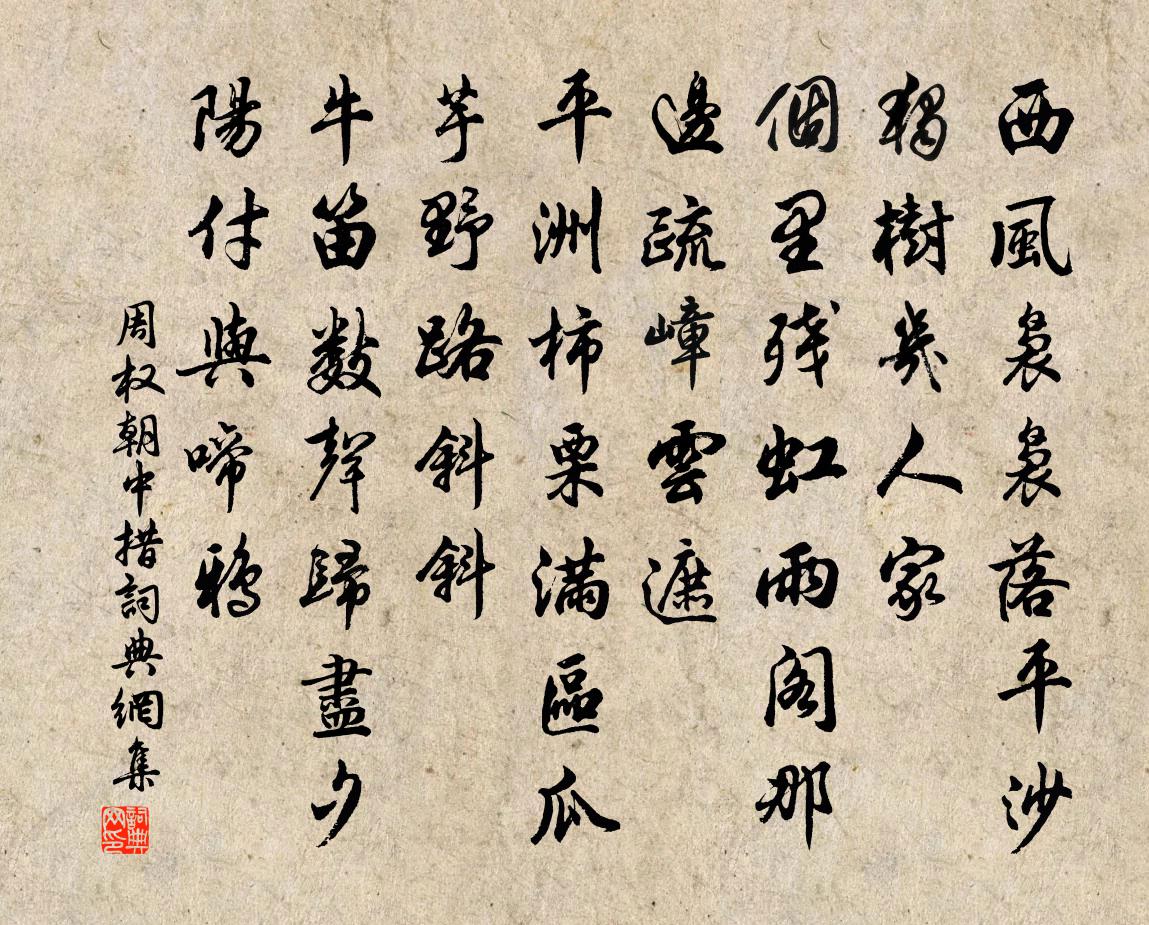 西風裊裊落平沙
獨樹幾人家
個里殘虹雨閣那
邊疏嶂雲遮
平洲柿栗滿區瓜
芋野路斜斜
牛笛數聲歸盡夕
陽付與啼鴉
周权朝中措詞典網集
詞典网印